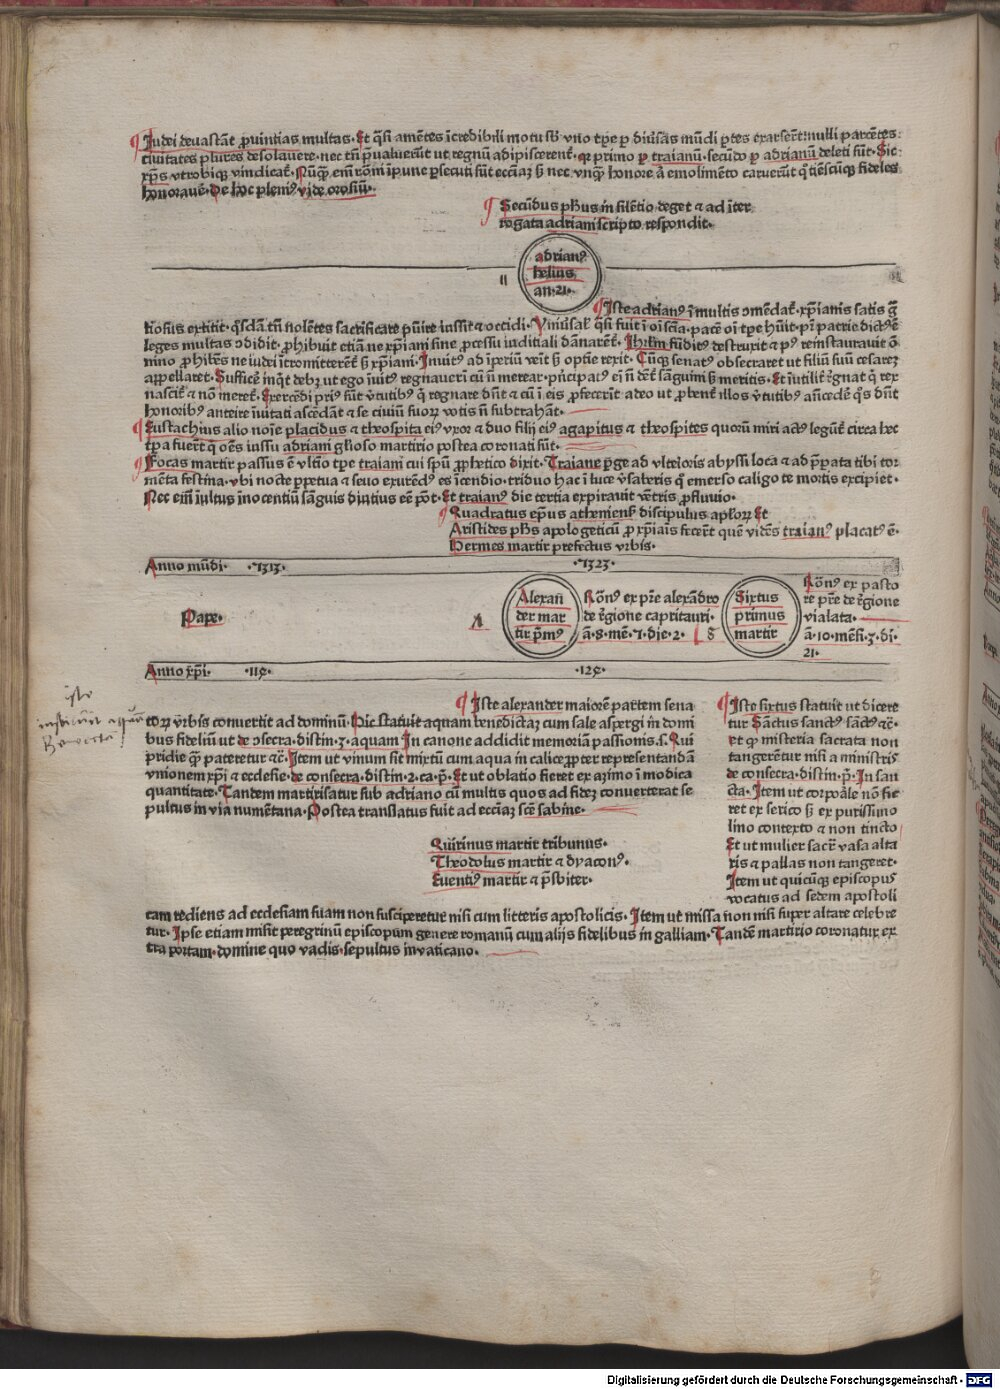 Iudei deuastāt ꝓuintias multas. Et q̄si amētes īcredibili motu sb̄ vno tꝑe ꝑ diu̓sas mūdi ꝑtes exarserēt: nulli parcētes:
ciuitates plures desolauere. nec tn̄ p̄ualuerūt ut regnū adipiscerent. qꝛ primo ꝑ traianū. secūdo ꝑ adrianū deleti sūt. Sic
xp̄s vtrobiqꝫ vindicat̄. Nūqꝫ em̄ rōni īpune ꝑsecuti sūt eccīaꝫ
honorauēt. De hoc pleniꝰ vide orosiū.
Secūdus ph̄us in silētio deget ⁊ ad īter
rogata adriani scripto respondit.
adrianꝰ
helius
an. 21.
11
Iste adrianꝰ ī multis ↄmēdat̄. xp̄ianis satis ḡ
tiosus extitit. q̄sdā tn̄ nolētes sacrificare pūire iussit ⁊ occidi.
leges multas ↄdidit. ꝓhibuit etiā ne xp̄iani sine ꝓcessu iuditiali dānarēt̄. Ihrl̄m fūditꝰ destruxit ⁊ pꝰ reinstaurauit ō
mino ꝓhibēs ne iudei ītromitterēt̄ sꝫ xp̄iani. Inuitꝰ ad īperiū veīt sꝫ optīe rexit. Cūqꝫ senatꝰ obsecraret ut filiū suū cesareꝫ
appellaret. Sufficē inq̄t debꝫ ut ego īuitꝰ regnauerī cū ñ merear. pn̄cipatꝰ eī ñ dēt̄ sāguini sꝫ meritis. Et īutilit̄ r̄gnat q̄ rex
nascit̄ ⁊ nō meret̄.
honoribꝰ anteire īuitati ascēdāt ⁊ se ciuiū suoꝝ votis ñ subtrahāt.
Eustachius alio noīe placidus ⁊ theospita eiꝰ vxor ⁊ duo filij eiꝰ agapitus ⁊ theospites quorū miri actꝰ legūt̄ circa hec
tꝑa fuerūt q̄ oēs iussu adriani gl̄ioso martirio postea coronati sūt.
Focas martir passus ē vltīo tꝑe traiani cui spū ꝓphetico dixit. Traiane ꝑge ad vlteriͦris abyssi loca ⁊ ad p̄parata tibi tor
mēta festina. vbi nocte ꝑpetua ⁊ seuo exurēdꝰ es īcendio. triduo hac ī luce ꝟsateris qꝫ emerso caligo te mortis excipiet.
Nec eim̄ inultus īnocentiū sāguis diutius eē pōt. Et traianꝰ die tertia expirauit vētris ꝓfluuio.
Quadratus ep̄us atheniens̄ discipulus apl̄oꝝ Et
Aristides ph̄s apologeticū ꝓ xp̄iais fecerēt quē vidēs traianꝰ placatꝰ ē.
Hermes martir prefectus vrbis.
Anno mūdi. .7313. .7323.
Pape.
Alexan̄
der mar
tir p̄mꝰ
Rōnꝰ ex pr̄e alexādro
de r̄gione capritauri.
ā. 8. mē. 7. die. 2.
8
Sixtus
primus
martir
Rōnꝰ ex pasto
re pr̄e de r̄gione
vialata.
ā. 10. mēs̄. 3. di.
21.
Anno xp̄i. .119. .129.
Iste alexander maiorē partem sena
toꝝ vrbis conuertit ad dominū. Hic statuit aquam benedictaꝫ cum sale asꝑgi in domi
bus fideliū ut de ↄsecra. distin. 3. aquam. In canone addidit memoriā passionis. s. Qui
pridie q̄ pateretur ⁊c̄. Item ut vinum sit mixtū cum aqua in calice ꝓpter representandā
vnionem xp̄i ⁊ ecclesie. de consecra. distin. 2. ca. p̄. Et ut oblatio fieret ex azimo ī modica
quantitate. Tandem martirisatur sub adriano cū multis quos ad fideꝫ conuerterat se
pultus in via numētana. Postea translatus fuit ad eccīaꝫ scē sabine.
Iste sixtus statuit ut diceret
tur Sāctus sanctꝰ sāctꝰ ⁊c̄.
Et qꝫ misteria sacrata non
tangerētur nisi a ministris
de consecra. distin. p̄. In san
cta. Item ut corporale nō fie
ret ex serico sꝫ ex purissimo
lino contexto ⁊ non tincto
Et ut mulier sacr̄ vasa alta
ris ⁊ pallas non tangeret.
Item ut quicūqꝫ episcopus
vocatus ad sedem apostoli
Quirinus martir tribunus.
Theodolus martir ⁊ dyaconꝰ.
Euentiꝰ martir ⁊ p̄sbiter.
cam rediens ad ecclesiam suam non susciperetur nisi cum litteris apostolicis. Item ut missa non nisi super altare celebre
tur. Ipse etiam misit peregrinū episcopum genere romanū cum alijs fidelibus in galliam. Tandē martirio coronatur ex
tra portam. domine quo vadis. sepultus in vaticano.
iste
instituit aquā
Digitalisierung gefördert durch die Deutsche Forschungsgemeinschaft - DFG